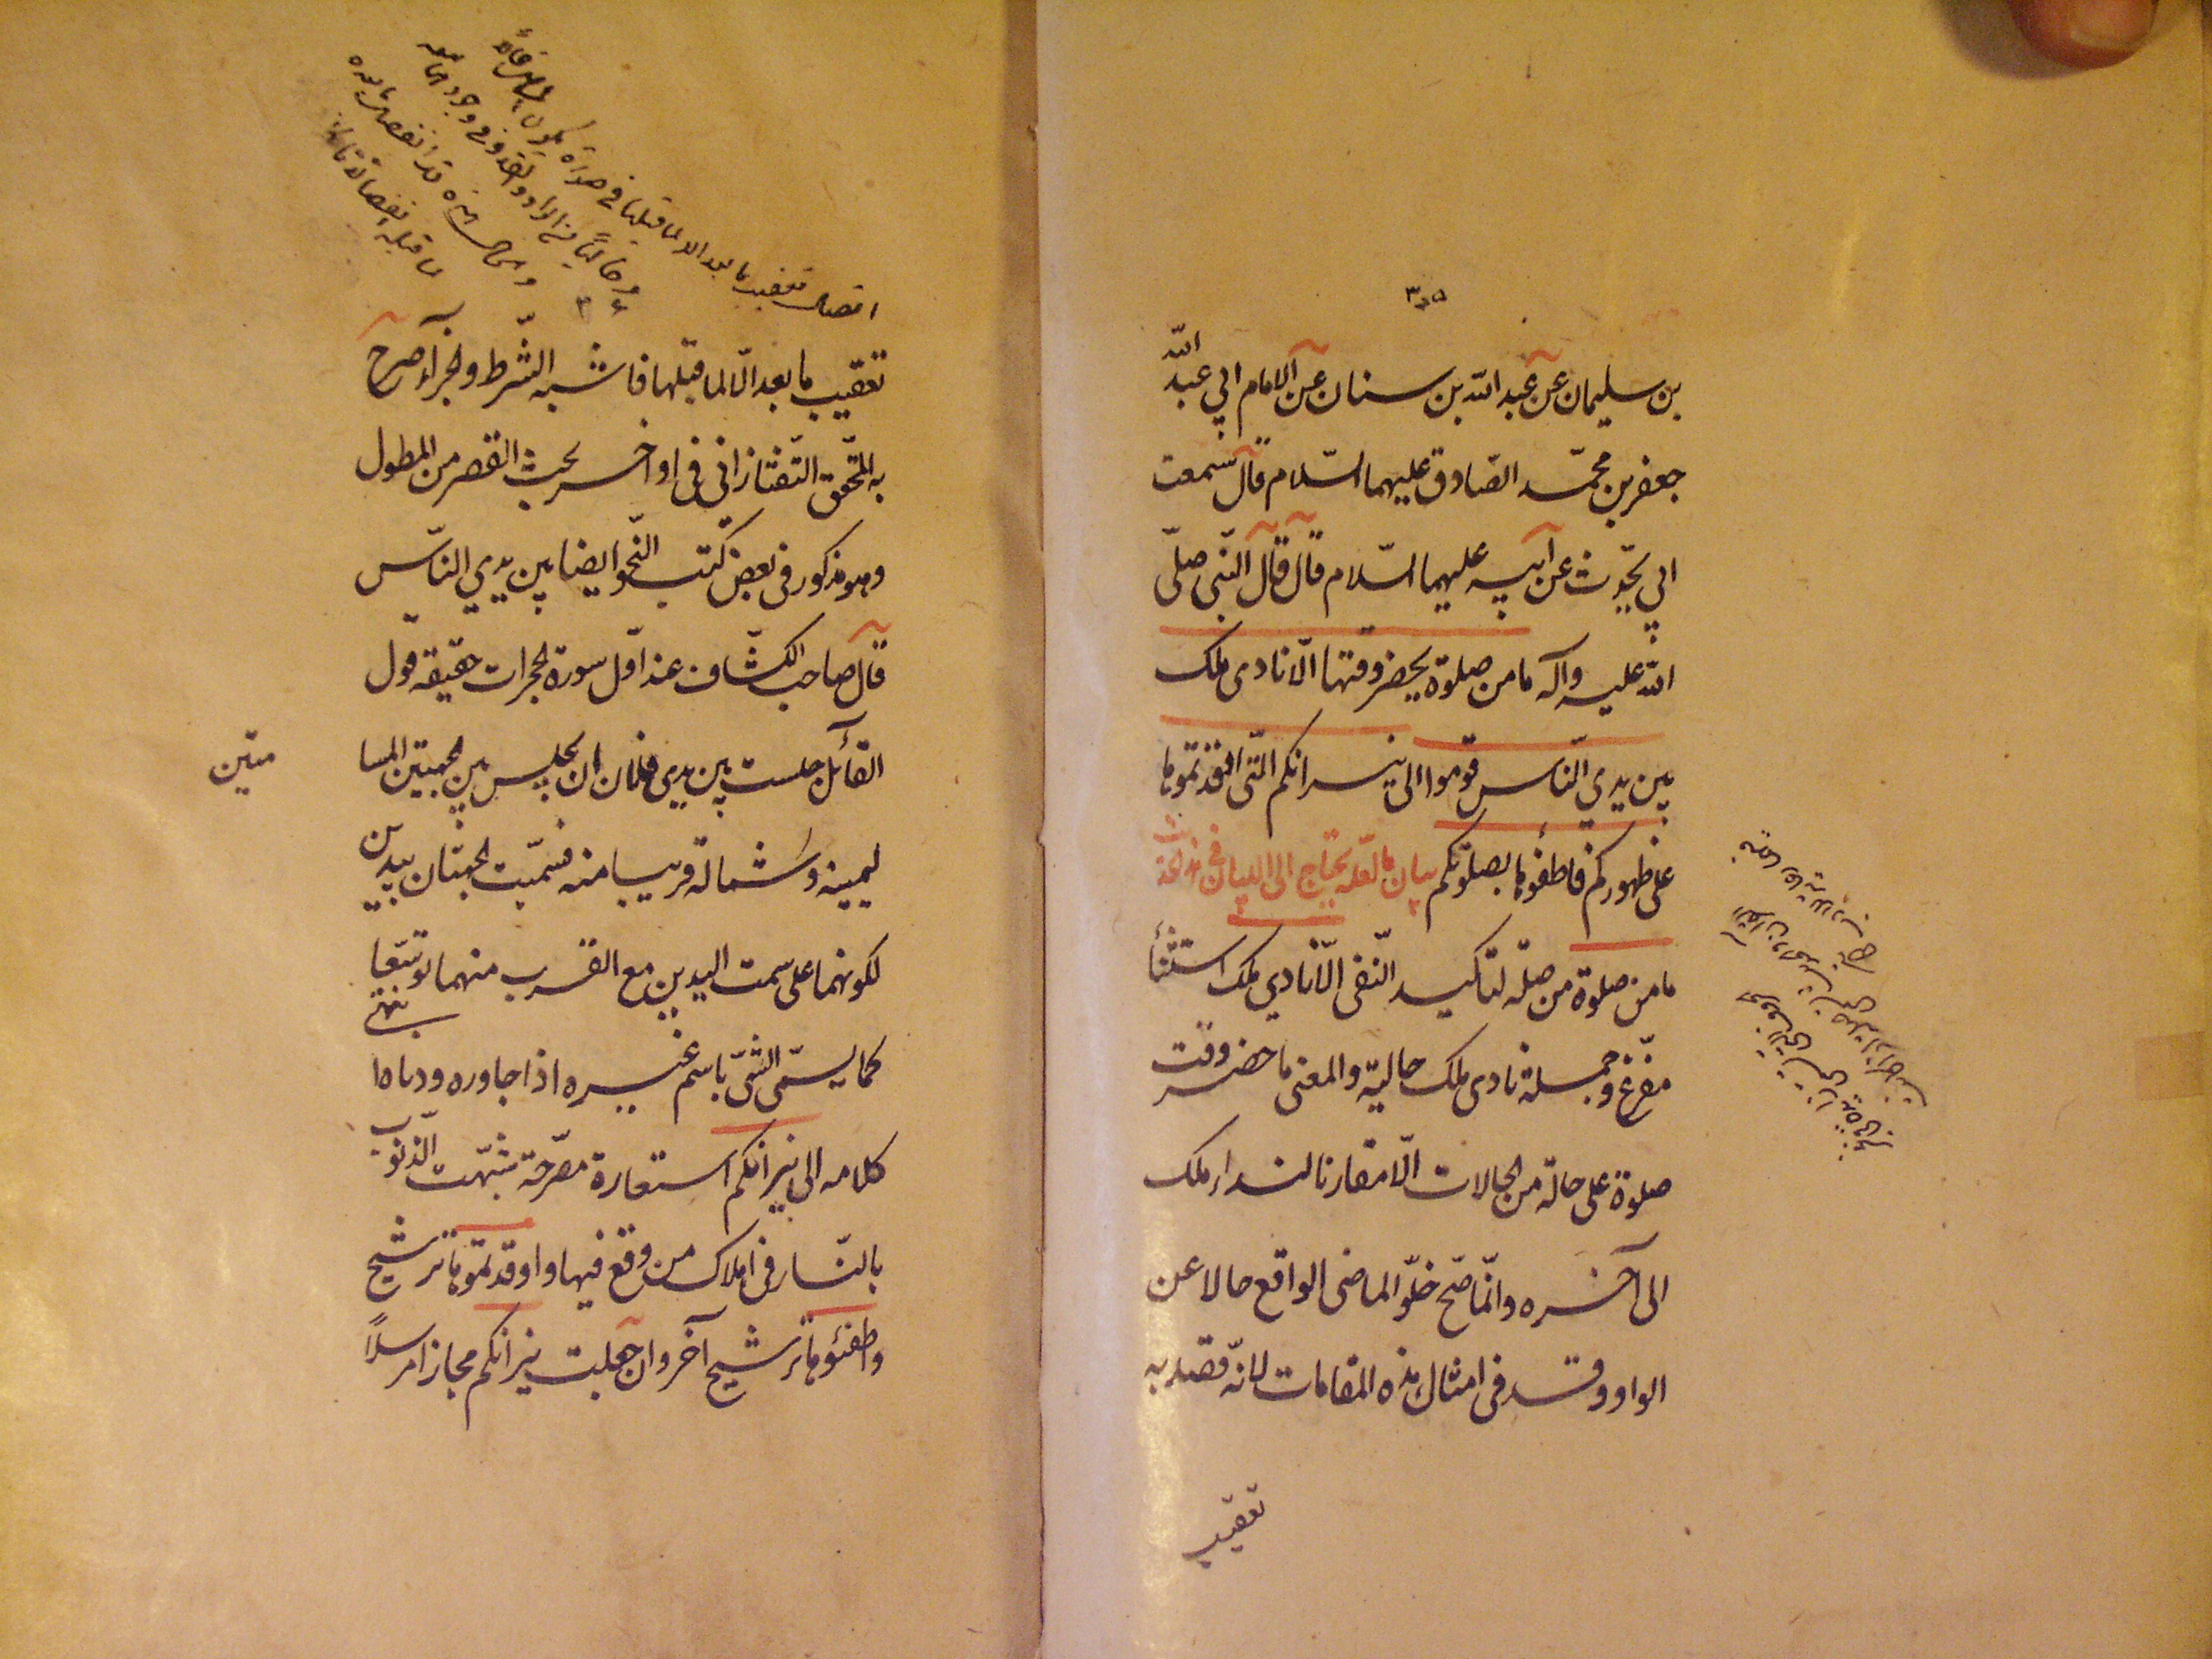 بن سليمان عن عبد الله بن سنان عن الامام ابي عبد الله
جعفر بن محمّد الصّادق عليهما السّلام قال سمعت
ابي يحدّث عن ابيه عليهما السّلام قال قال النّبي صلّى
الله عليه وآله ما من صلوة يحضر وقتها الّا نادى ملك
بين يدي النّاس قوموا الى نيرانكم الّتى اوقدتموها
على ظهوركم فاطفؤها بصلوتكم بيان ما لعلّه يحتاج الى البيان فى هذا الحديث
ما من صلوة من صلة لتاكيد النّفى الّا نادي ملك استثنآء
مفرّغ وجملة نادى ملك حاليّة والمعنى ما حضر وقت
صلوة على حالة من الحالات الّا مقارنا لنداء ملك
الى آخره وانّما صّح خلّو الماضى الواقع حالا عن
الواو وقد فى امثال هذه المقامات لانّه قصد به
تعقيب
تعقيب ما بعد الّا لما قبلها فاشبه الشّرط والجزآء صرح
به المحّقق التّفتازانى فى اواخر بحث القصر من المطول
وهو مذكور فى بعض كتب النّحو ايضا بين يدي النّاس
قال صاحب الكشّاف عند اوّل سورة الحجرات حقيقة قول
القآئل جلست بين يدى فلان ان يجلس بين الجهتين المسا
متين
ليمينه وشماله قريبا منه فسمّيت الجهتان يدين
لكونهما على سمت اليدين مع القرب منهما توسّعا
كما يسمّى الشّئ باسم غيره اذا جاوره وداناه انتهى
كلامه الى نيرانكم استعارة مصّرحة شبّهت الذّنوب
بالنّار فى اهلاك من وقع فيها واوقدتموها ترشيح
واطفئوها ترشيح آخر وان جعلت نيرانكم مجازا مرسلاً